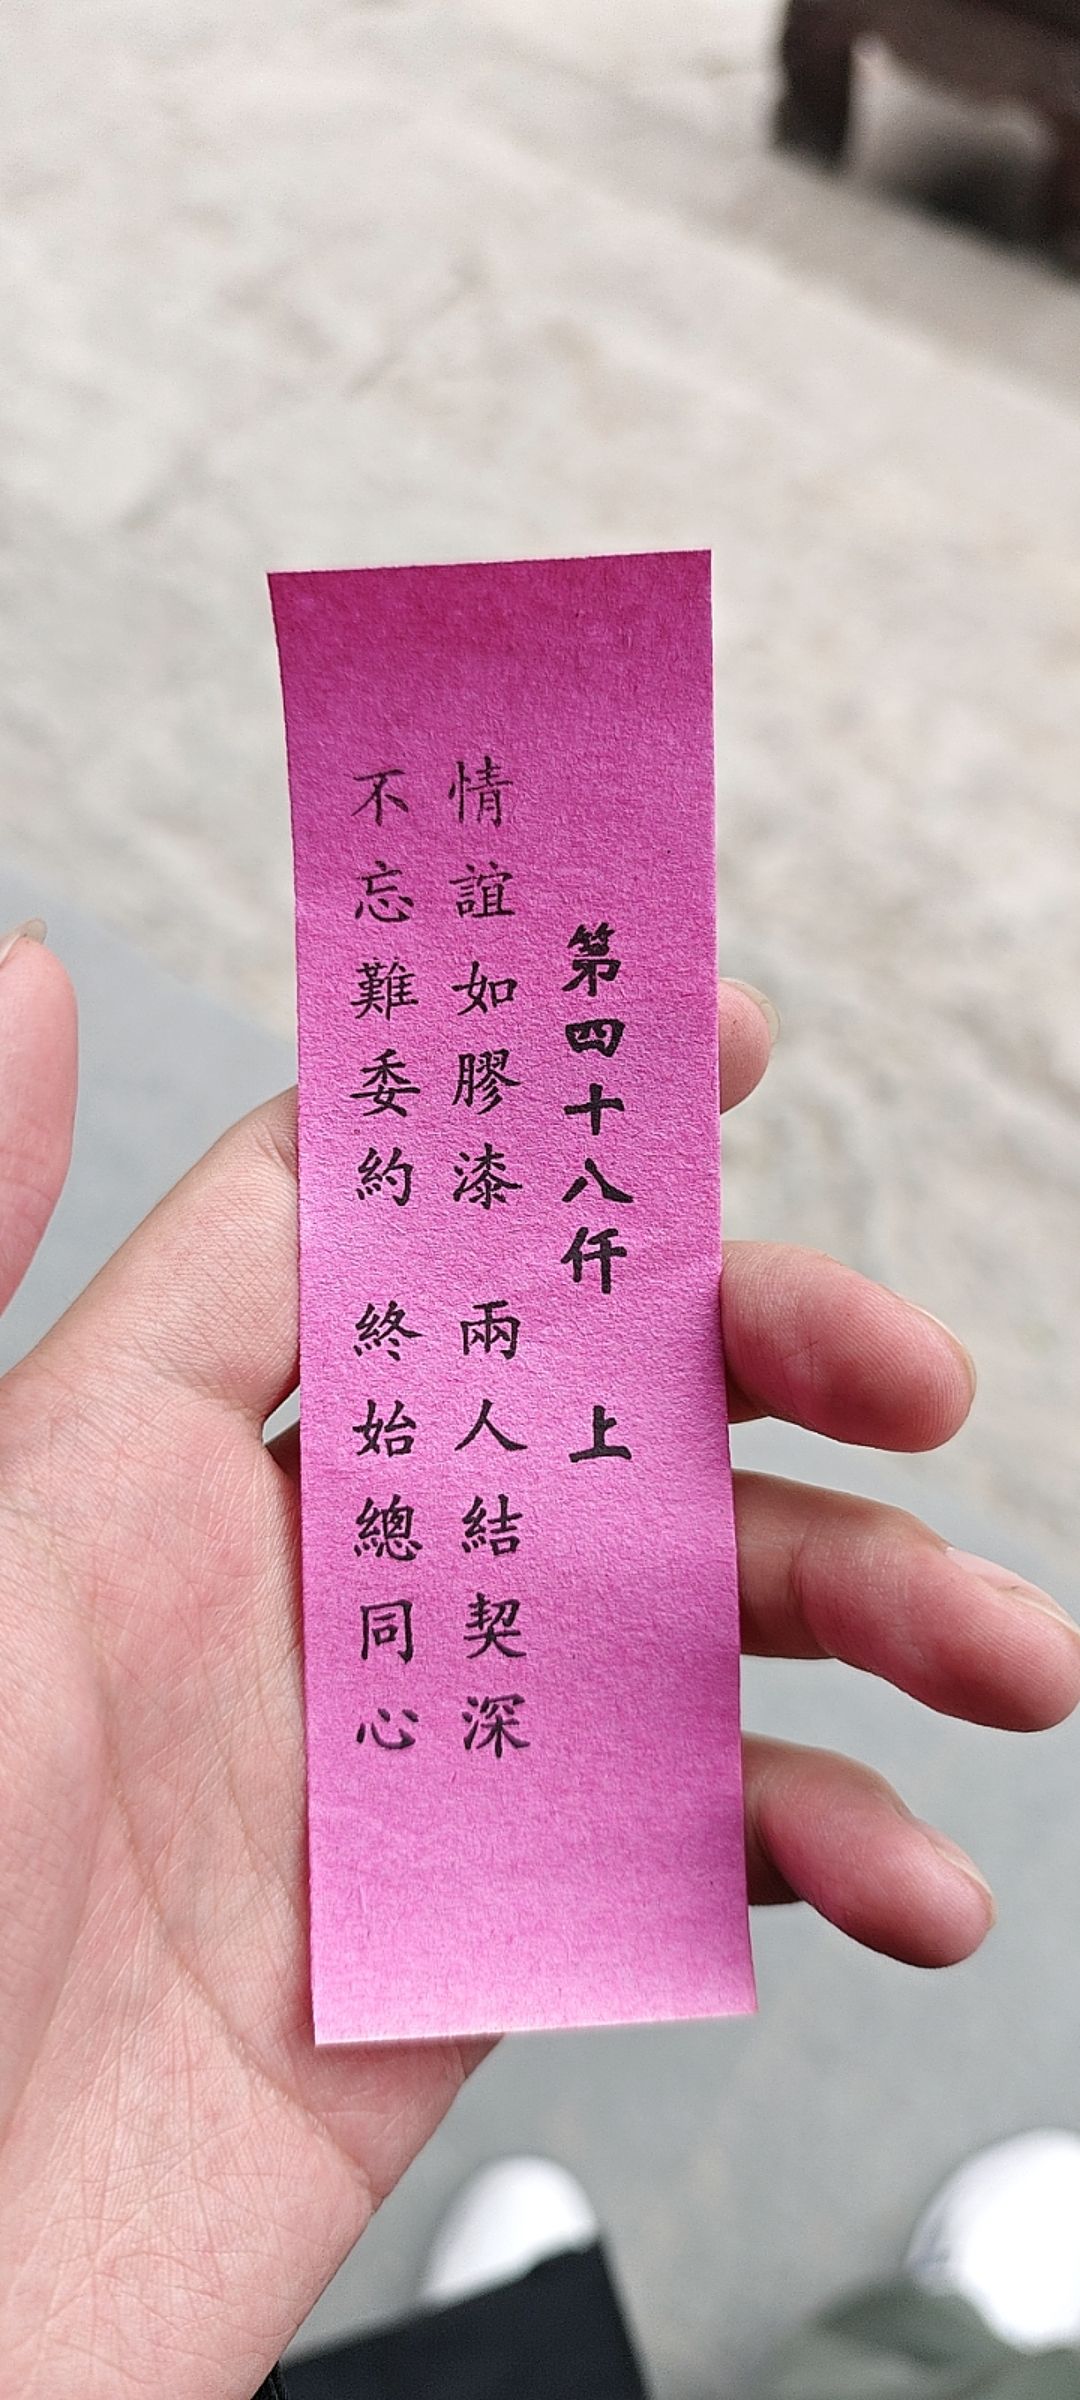 第四十八仟　上
情誼如膠漆　兩人結契深
不忘難委約　終始總同心